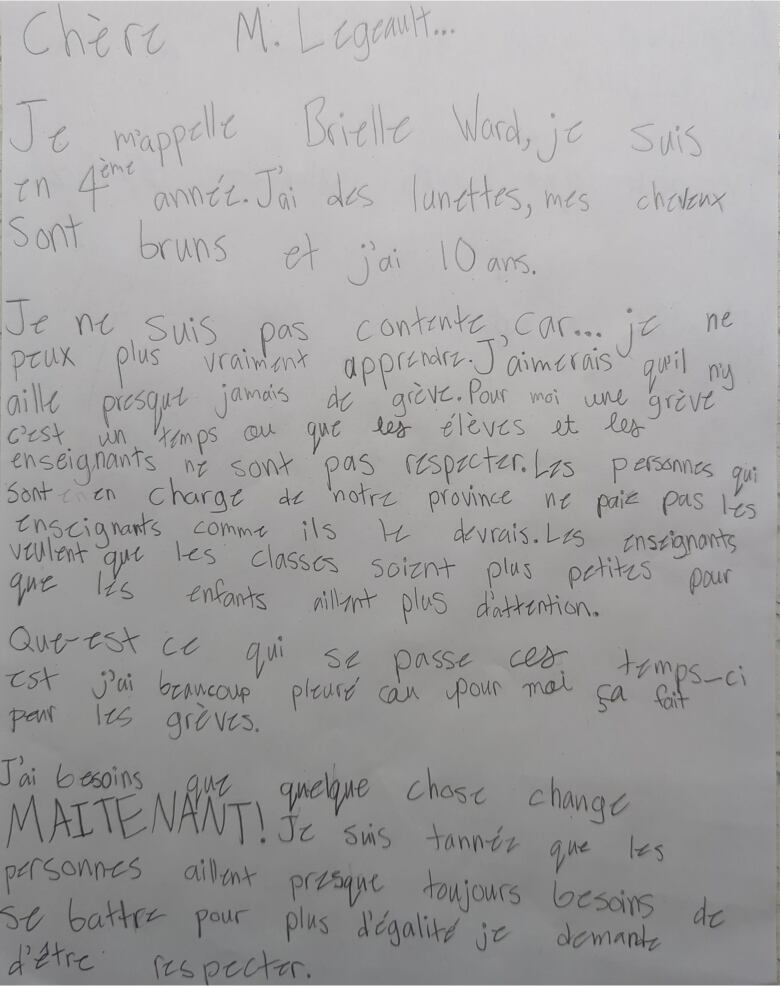 Chère M. Legeault...
Je m'appelle Brielle Ward, je suis
en 4ème année. J'ai des lunettes, mes cheveux
sont bruns et j'ai 10 ans.
Je ne suis pas contente, car... je ne
peux plus vraiment apprendre. J'aimerais qu'il n'y
aille presque jamais de grève. Pour moi une grève
c'est un temps ou que les élèves et les
enseignants ne sont pas respecter. Les personnes qui
sont en charge de notre province ne paie pas les
enseignants comme ils le devrais. Les enseignants
veulent que les classes soient plus petites pour
que les enfants aillent plus d'attention.
Que-est ce qui se passe ces temps-ci
est j'ai beaucoup pleuré car pour moi ça fait
peur les grèves.
J'ai besoins que quelque chose change
MAITENANT! Je suis tannée que les
personnes aillent presque toujours besoins de
se battre pour plus d'égalité je demande
d'être respecter.